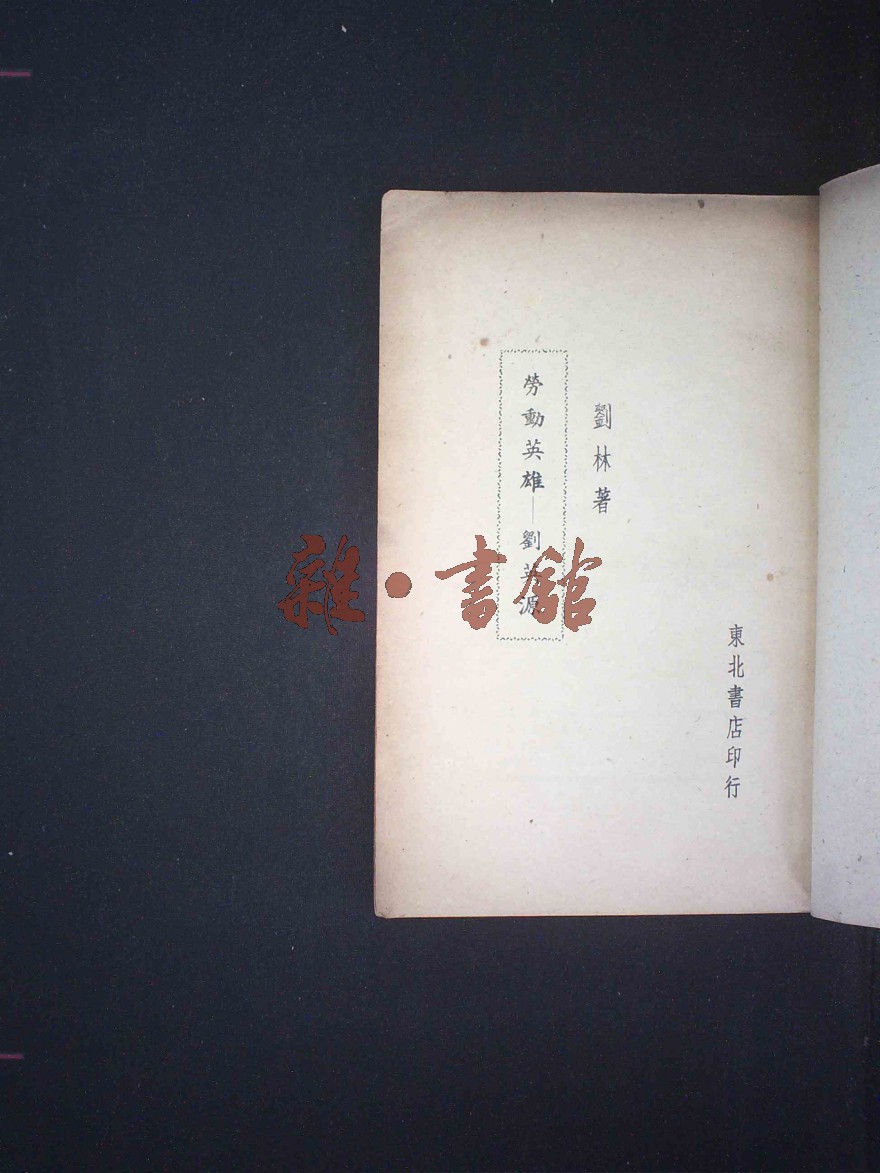 東北書店印行
劉林著
勞動英雄——劉英源
雜·書館